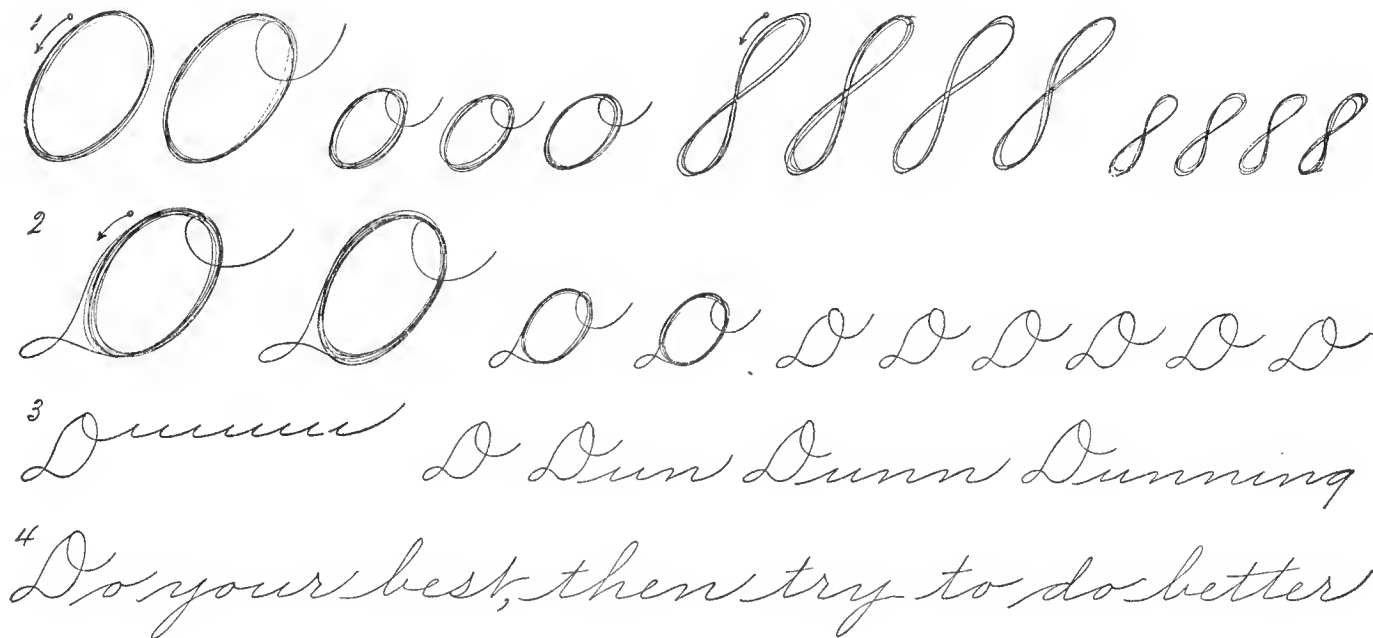 1 O O O O O 8 8 8 8 8 8 8 8
2 D D D D D D D D D D
3 D D Dun Dunn Dunning
4 Do your best, then try to do better